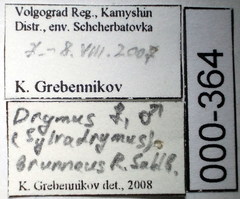 Volgograd Reg., Kamyshin
Distr., env. Schcherbatovka
7.-8.VIII.2007
K. Grebennikov
Drymus ♀, ♂
(Sylvadrymus)
brunneus R. Sahlb.
K. Grebennikov det., 2008
000-364